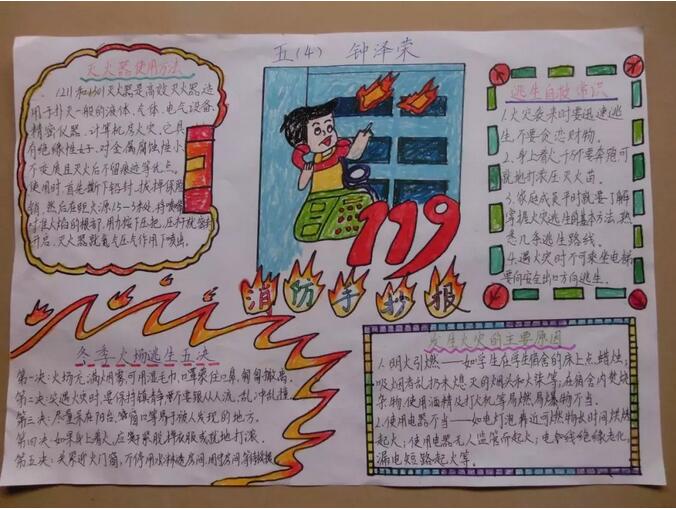 五(4) 钟泽荣
灭火器使用方法
1211和1301灭火器是高效灭火器,适
用于扑灭一般的液体、气体、电气设备、
精密仪器、计算机房火灾。它具
有绝缘性好,对金属腐蚀性小,
不变质且灭火后不留痕迹等优点。
使用时,首先撕下铅封,拔掉保险
销,然后在距火源1.5—3米处,将喷嘴
对准火焰的根部,用力按下压把,压杆就
开启,灭火器就氮气压气作用下喷出。
119
消防手抄报
逃生自救常识
1.火灾袭来时要迅速逃
生,不要贪恋财物。
2.身上着火,千万不要奔跑,可
就地打滚压灭火苗。
3.家庭成员平时就要了解
掌握火灾逃生的基本方法,熟
悉几条逃生路线。
4.遇火灾时不可乘坐电梯
要向安全出口方向逃生。
冬季火场逃生五决
第一决:火场充满烟雾可用湿毛巾,口罩蒙住口鼻,匍匐撤离。
第二决:突遇火灾时,要保持镇静,不要跟从人流,乱冲乱撞。
第三决:尽量呆在阳台、窗口等易于被人发现的地方。
第四决:如果身上着火,应赶紧脱掉衣服或就地打滚。
第五决:关紧迎火门窗,
发生火灾的主要原因
1.明火引燃——如学生在学生宿舍的床上点蜡烛;
吸烟者乱扔未熄灭的烟头和火柴等,在宿舍内焚烧
杂物,使用酒精及打火机等易燃易爆物不当。
2.使用电器不当——如电灯泡靠近可燃物长时间烘烤
起火;使用电器无人监管而起火;电器线绝缘老化,
漏电短路起火等。